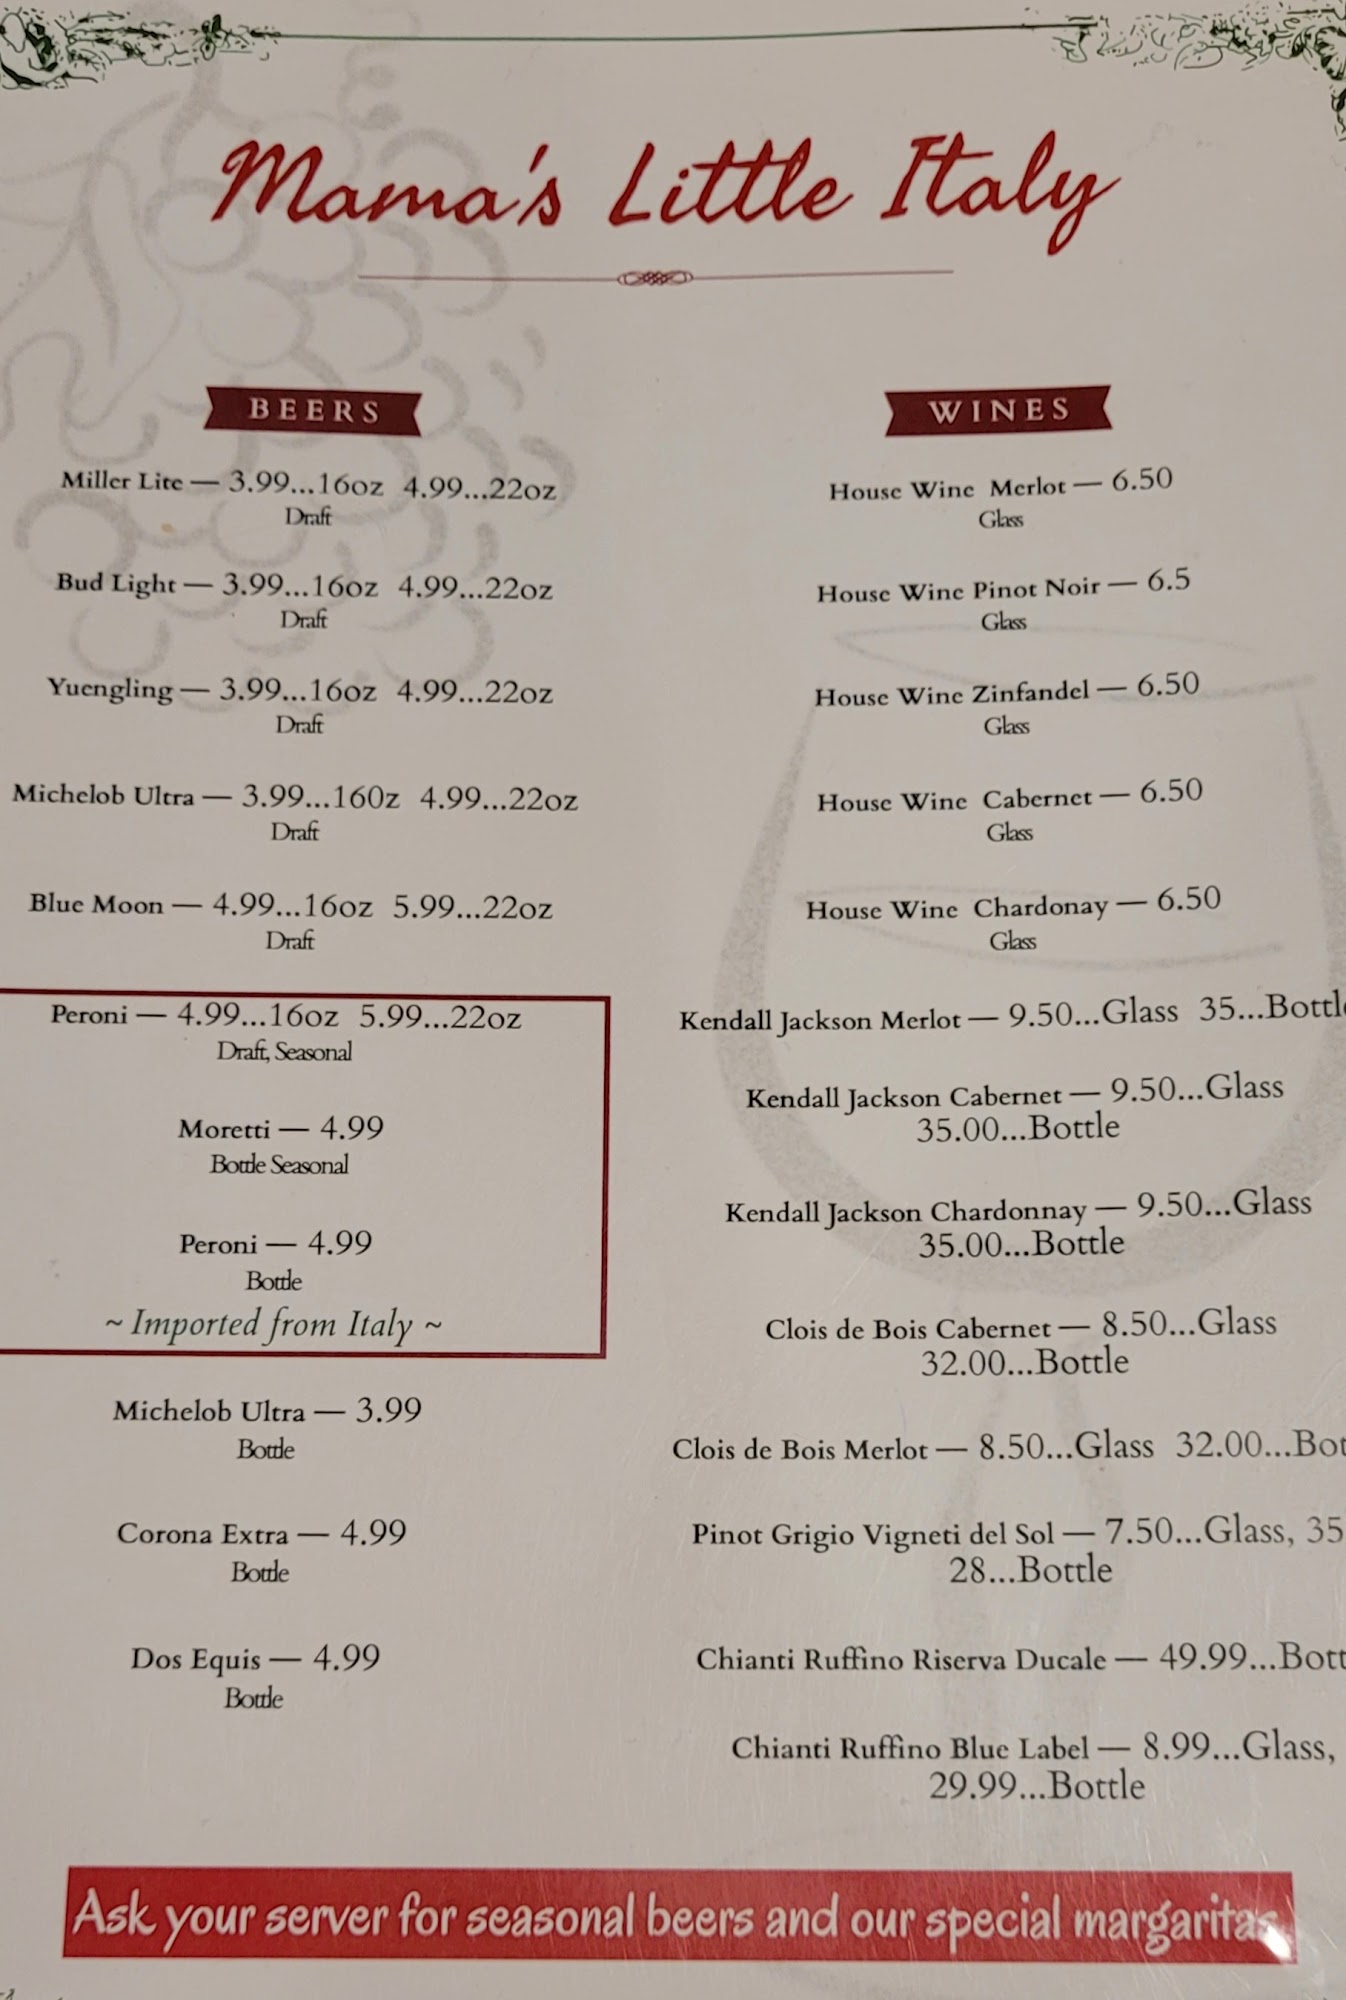 Mama's Little Italy
BEERS
Miller Lite — 3.99...16oz 4.99...22oz
Draft
Bud Light — 3.99...16oz 4.99...22oz
Draft
Yuengling — 3.99...16oz 4.99...22oz
Draft
Michelob Ultra — 3.99...160z 4.99...22oz
Draft
Blue Moon — 4.99...16oz 5.99...22oz
Draft
Peroni — 4.99...16oz 5.99...22oz
Draft, Seasonal
Moretti — 4.99
Bottle Seasonal
Peroni — 4.99
Bottle
~ Imported from Italy ~
Michelob Ultra — 3.99
Bottle
Corona Extra — 4.99
Bottle
Dos Equis — 4.99
Bottle
WINES
House Wine Merlot — 6.50
Glass
House Wine Pinot Noir — 6.5
Glass
House Wine Zinfandel — 6.50
Glass
House Wine Cabernet — 6.50
Glass
House Wine Chardonay — 6.50
Glass
Kendall Jackson Merlot — 9.50...Glass 35...Bottle
Kendall Jackson Cabernet — 9.50...Glass
35.00...Bottle
Kendall Jackson Chardonnay — 9.50...Glass
35.00...Bottle
Clois de Bois Cabernet — 8.50...Glass
32.00...Bottle
Clois de Bois Merlot — 8.50...Glass 32.00...Bot
Pinot Grigio Vigneti del Sol — 7.50...Glass, 35
28...Bottle
Chianti Ruffino Riserva Ducale — 49.99...Bott
Chianti Ruffino Blue Label — 8.99...Glass,
29.99...Bottle
Ask your server for seasonal beers and our special margaritas